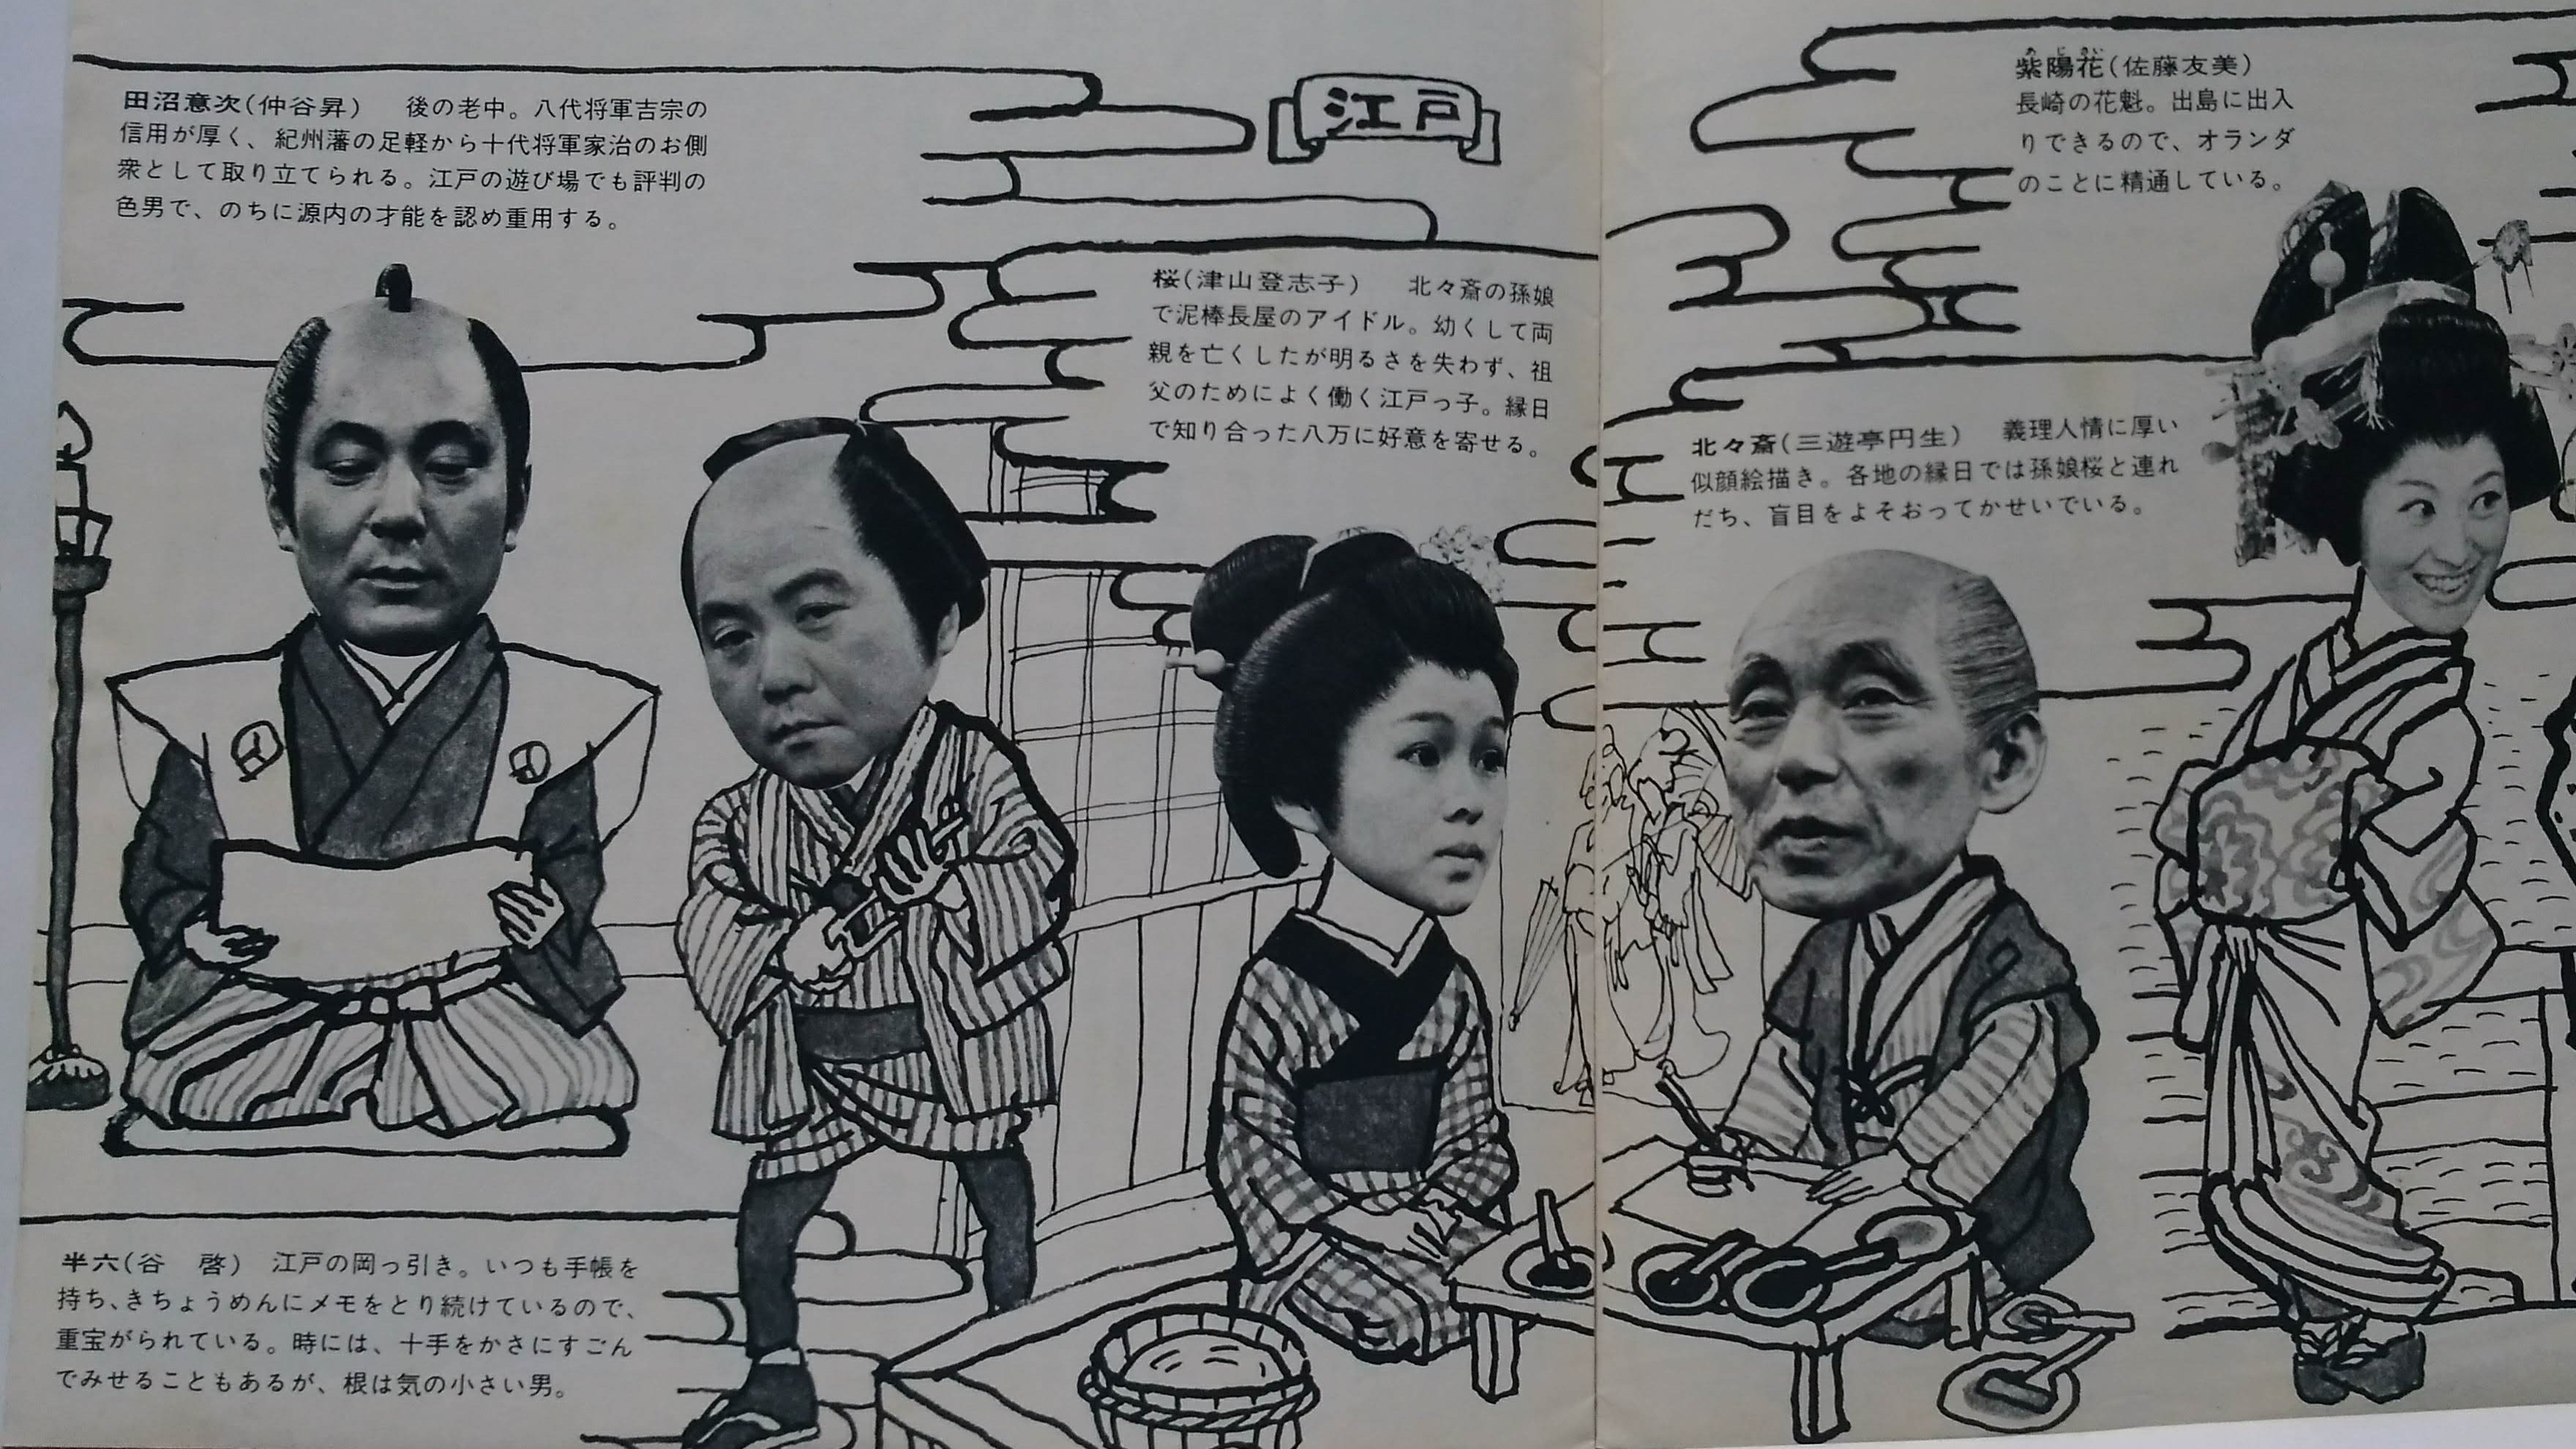 田沼意次(仲谷昇)　後の老中。八代将軍吉宗の
信用が厚く、紀州藩の足軽から十代将軍家治のお側
衆として取り立てられる。江戸の遊び場でも評判の
色男で、のちに源内の才能を認め重用する。
江戸
桜(津山登志子)　北々斎の孫娘
で泥棒長屋のアイドル。幼くして両
親を亡くしたが明るさを失わず、祖
父のためによく働く江戸っ子。縁日
で知り合った八万に好意を寄せる。
半六(谷　啓)　江戸の岡っ引き。いつも手帳を
持ち、きちょうめんにメモをとり続けているので、
重宝がられている。時には、十手をかさにすごん
でみせることもあるが、根は気の小さい男。
紫陽花(佐藤友美)
長崎の花魁。出島に出入
りできるので、オランダ
のことに精通している。
北々斎(三遊亭円生)　義理人情に厚い
似顔絵描き。各地の縁日では孫娘桜と連れ
だち、盲目をよそおってかせいでいる。